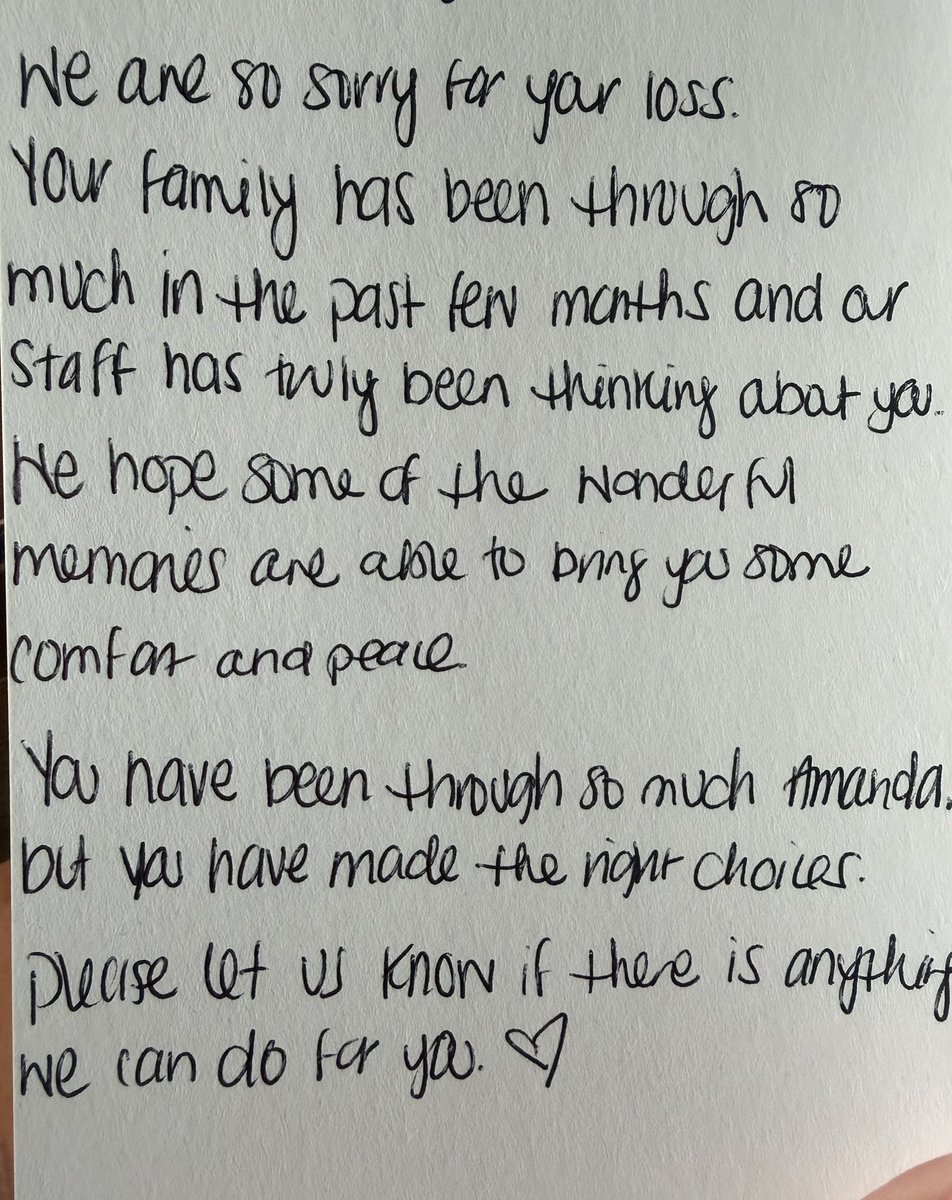 We are so sorry for your loss.
Your family has been through so
much in the past few months and our
Staff has truly been thinking about you.
We hope some of the wonderful
memories are able to bring you some
comfort and peace
You have been through so much Amanda.
but you have made the right choices.
please let us know if there is anything
we can do for you. ♡